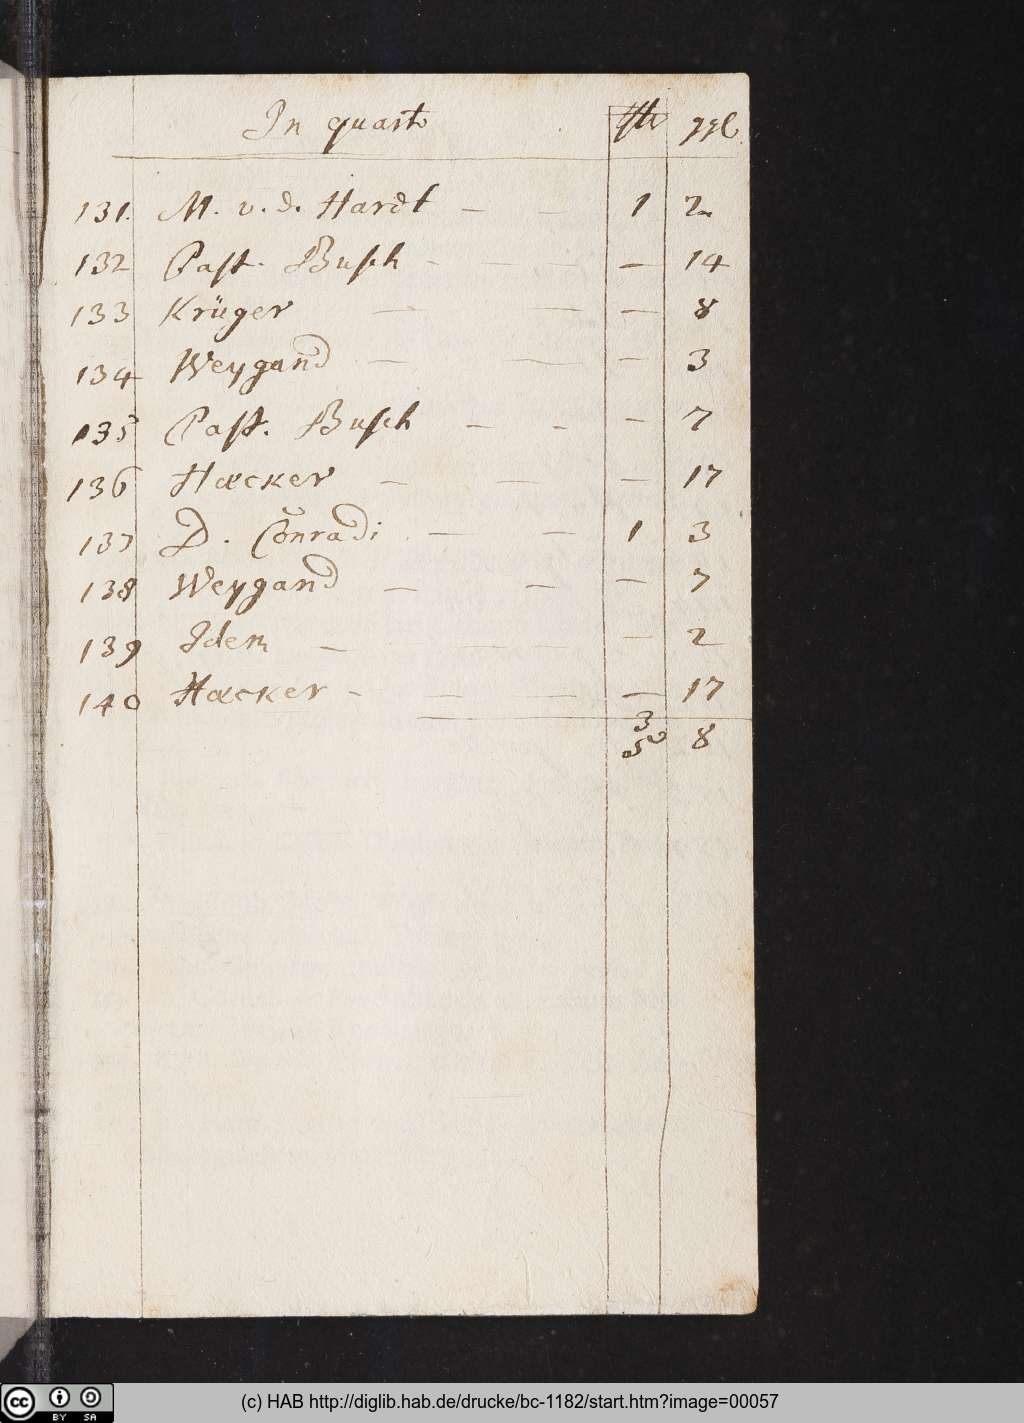 In quarto thlr ggl.
131. M. v. d. Hardt — — 1 2
132 Past. Busch - — — — 14
133 Krüger — — — 8
134 Weygand — — — 3
135 Past. Busch — - — 7
136 Hacker — — — 17
137 D. Conradi — — 1 3
138 Weygand — — — 7
139 Idem — — — — 2
140 Hacker - — — — 17
3 8
BY SA
(c) HAB http://diglib.hab.de/drucke/bc-1182/start.htm?image=00057